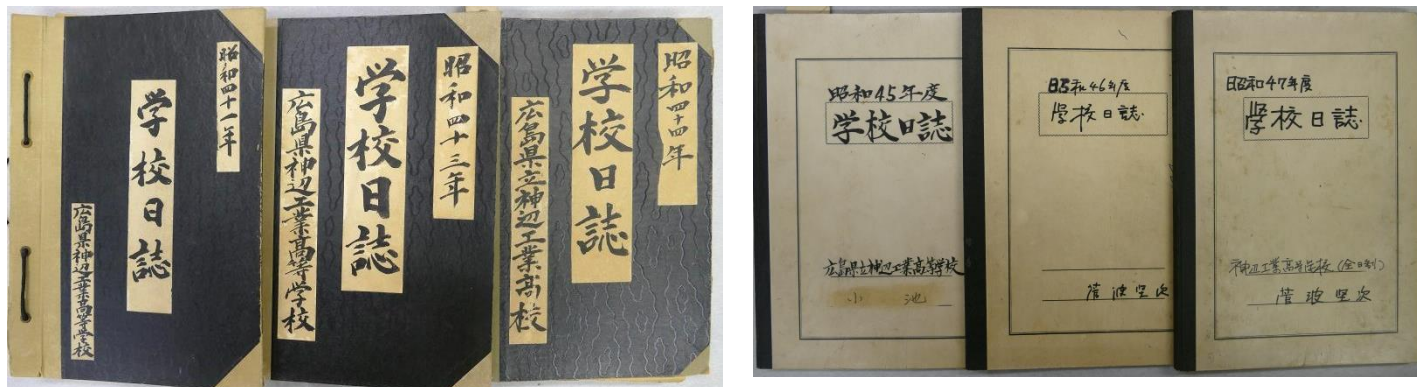 昭和四十一年
学校日誌
広島県神辺工業高等学校
昭和四十三年
学校日誌
広島県神辺工業高等学校
昭和四十四年
学校日誌
広島県立神辺工業高校
昭和45年度
学校日誌
広島県立神辺工業高等学校
小池
昭和46年度
学校日誌
菅波堅次
昭和47年度
学校日誌
神辺工業高等学校(全日制)
菅波堅次